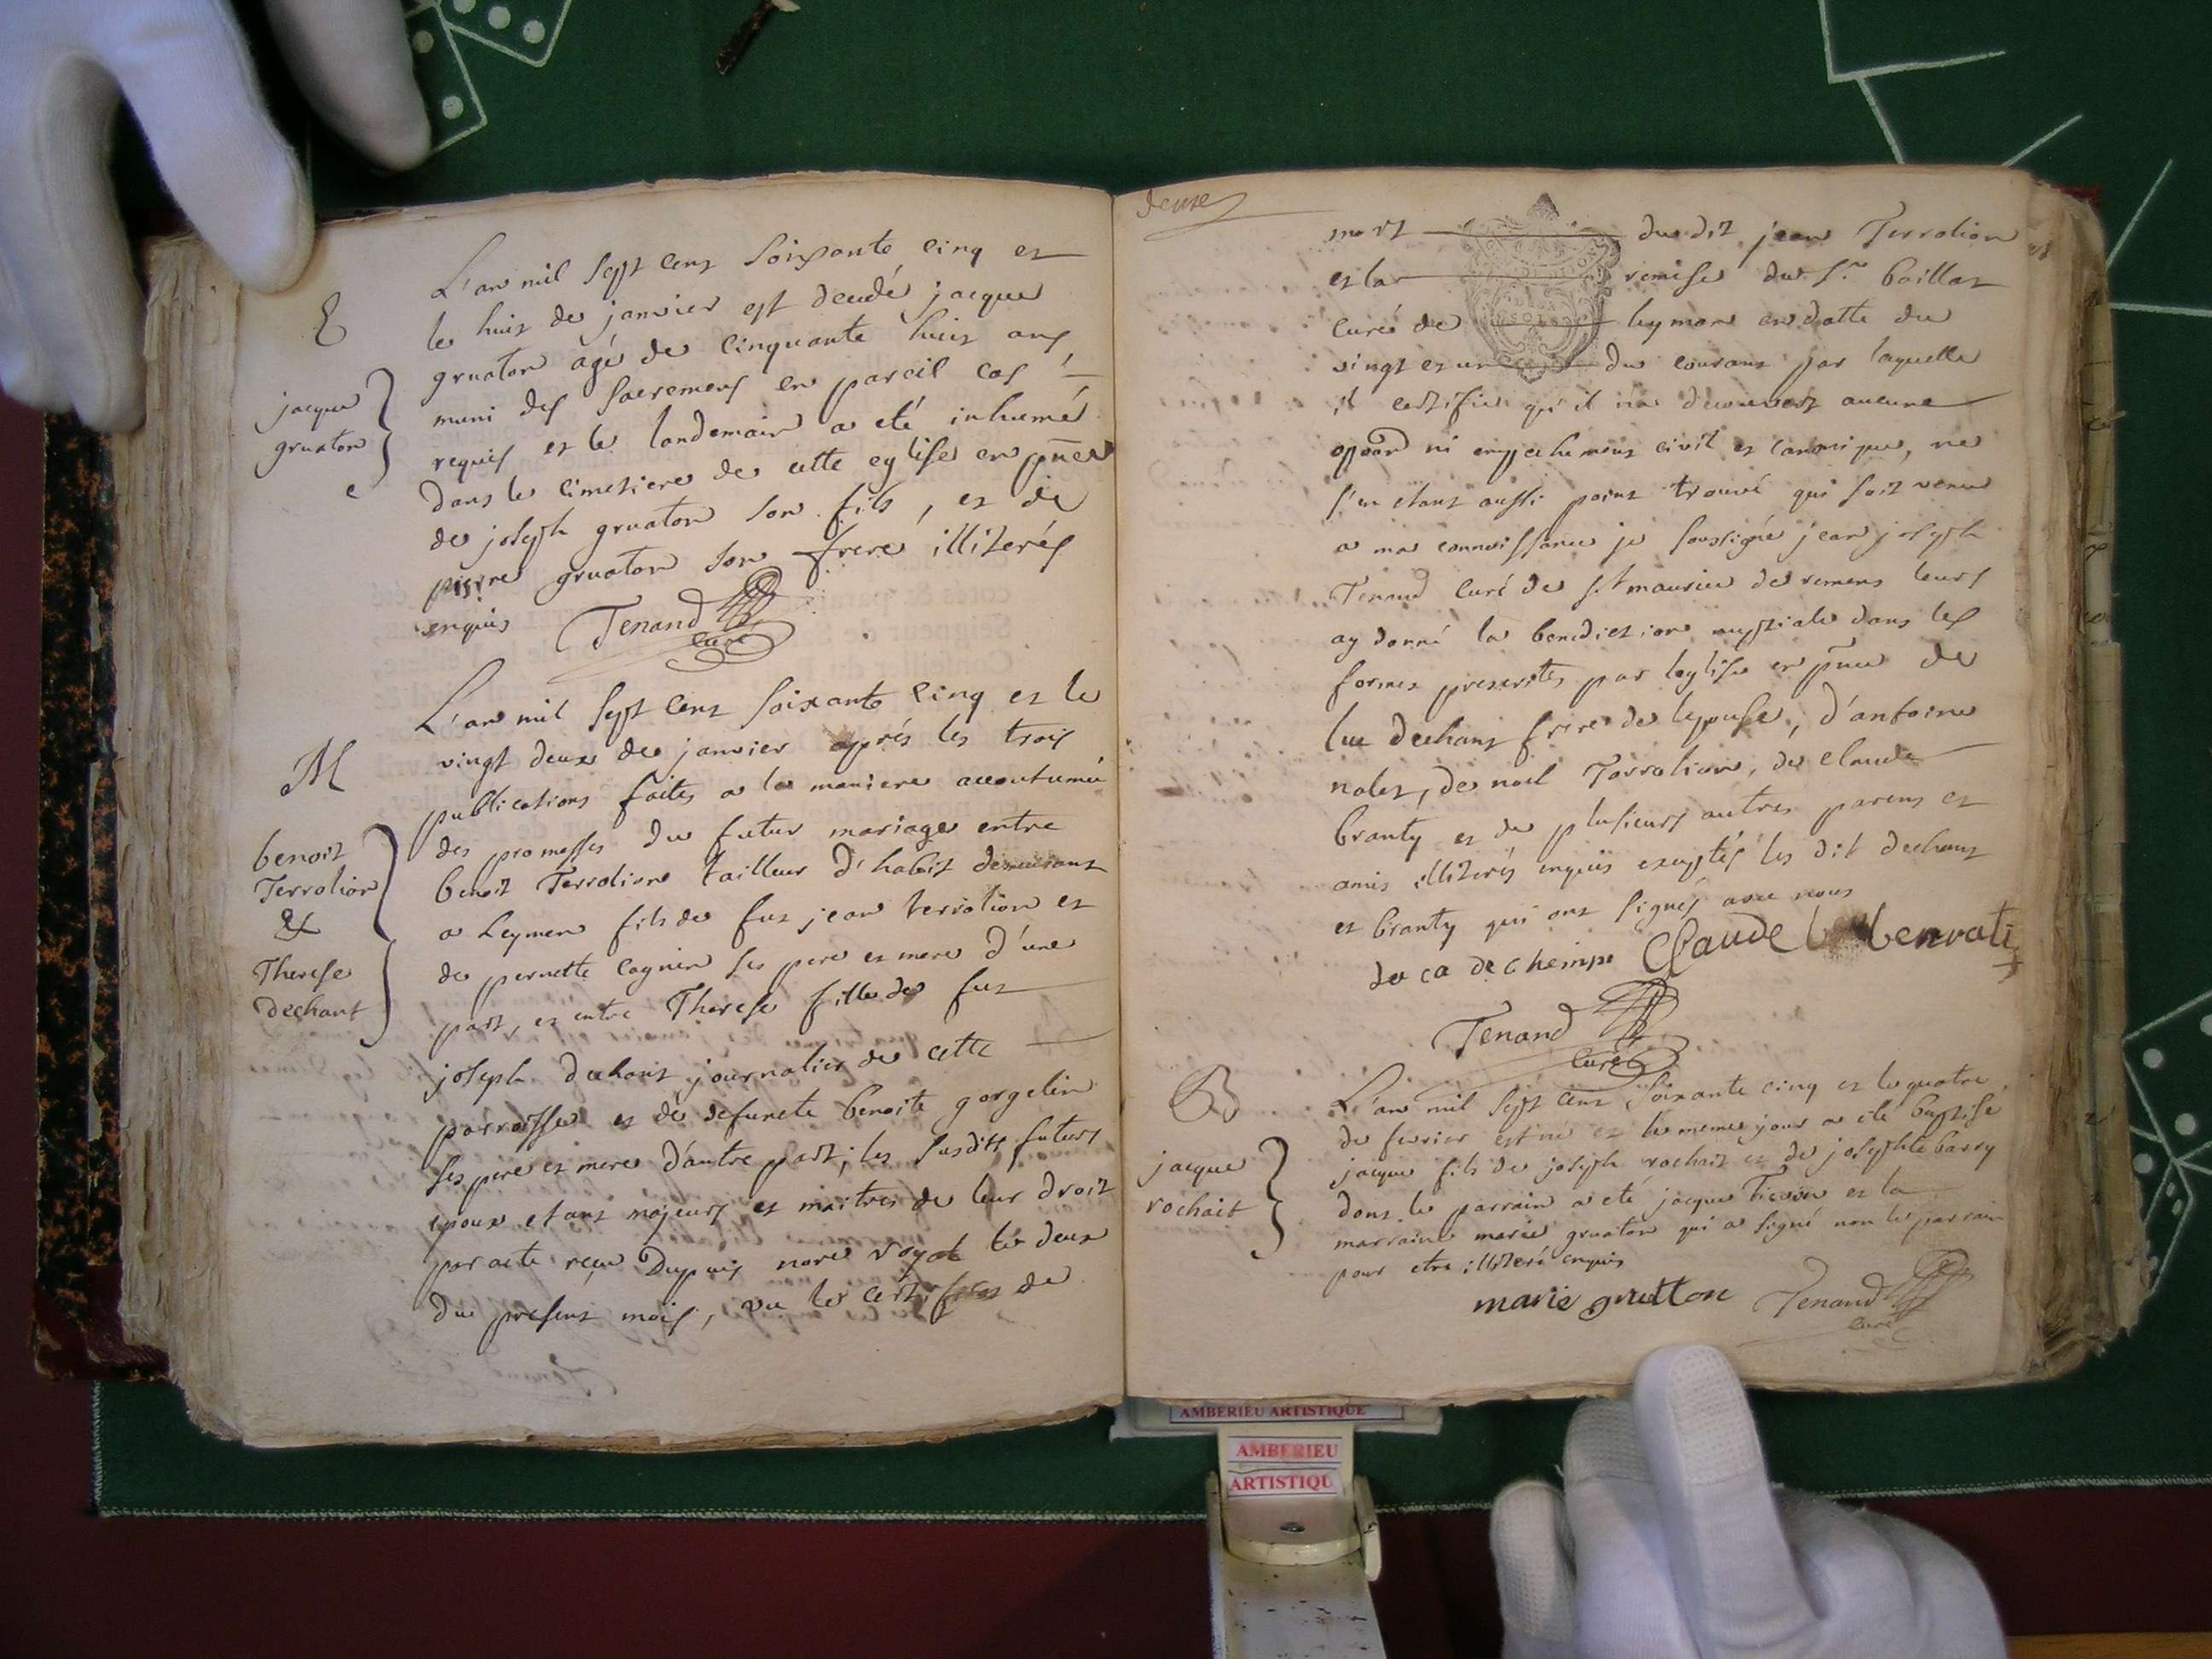 E
jacque
gruaton
L'an mil sept cent soixante cinq et
le huit de janvier est decedé jacque
gruaton agé de cinquante huit ans
muni des sacremens en pareil cas
requis et le landemain a eté inhumé
dans le cimetiere de cette eglise en pñce
de joseph gruaton son fils, et de
pierre gruaton son frere illiterés
enquis
Tenand
curé
M
benoit
Terrolion
&
Therese
dechant
L'an mil sept cent soixante cinq et le
vingt deux de janvier après les trois
publications faites a la maniere accoutumée
des promesses du futur mariage entre
benoit Terrolion tailleur d'habit demeurant
a Leymen fils de fut jean terrolion et
de pernette cognin ses pere et mere d'une
part, et entre Therese fille de fut
joseph dechant journalier de cette
parroisse et de defuncte benoite gorgelin
ses pere et mere d'autre part; les susdits futurs
epoux etant majeurs et maitres de leur droit
par acte reçu Dupuis nore royal le deux
du present mois, vu le certificat de
mort dudit jean Terrolion
et la remise du Sr. baillat
curé de leymen en datte du
vingt et un du courant par laquelle
il certifie qu'il n'a decouvert aucune
oppoon ni empechement civil et canonique, ne
s'en etant aussi point trouvé qui soit venu
a ma connoissance je soussigné jean joseph
Tenand curé de st maurice de remens leurs
ay donné la benediction nuptiale dans les
formes prescrites par leglise en pñce de
luc dechant frere de lepouse, d'antoine
nolet, de noel Terrolion, de claude
branty et de plusieurs autres parens et
amis illiterés enquis exceptés les dit dechant
et branty qui ont signés avec nous
Claude
Tenand
curé
B
jacque
rochait
L'an mil sept cent soixante cinq et le quatre
de fevrier est né et le meme jour a eté baptisé
jacque fils de joseph rochait et de josephte barry
dont le parrain a eté jacque et la
marraine marie gruaton qui a signé non le parrain
pour etre illiteré enquis
marie grutton
Tenand
curé
AMBERIEU ARTISTIQUE
AMBERIEU
ARTISTIQU